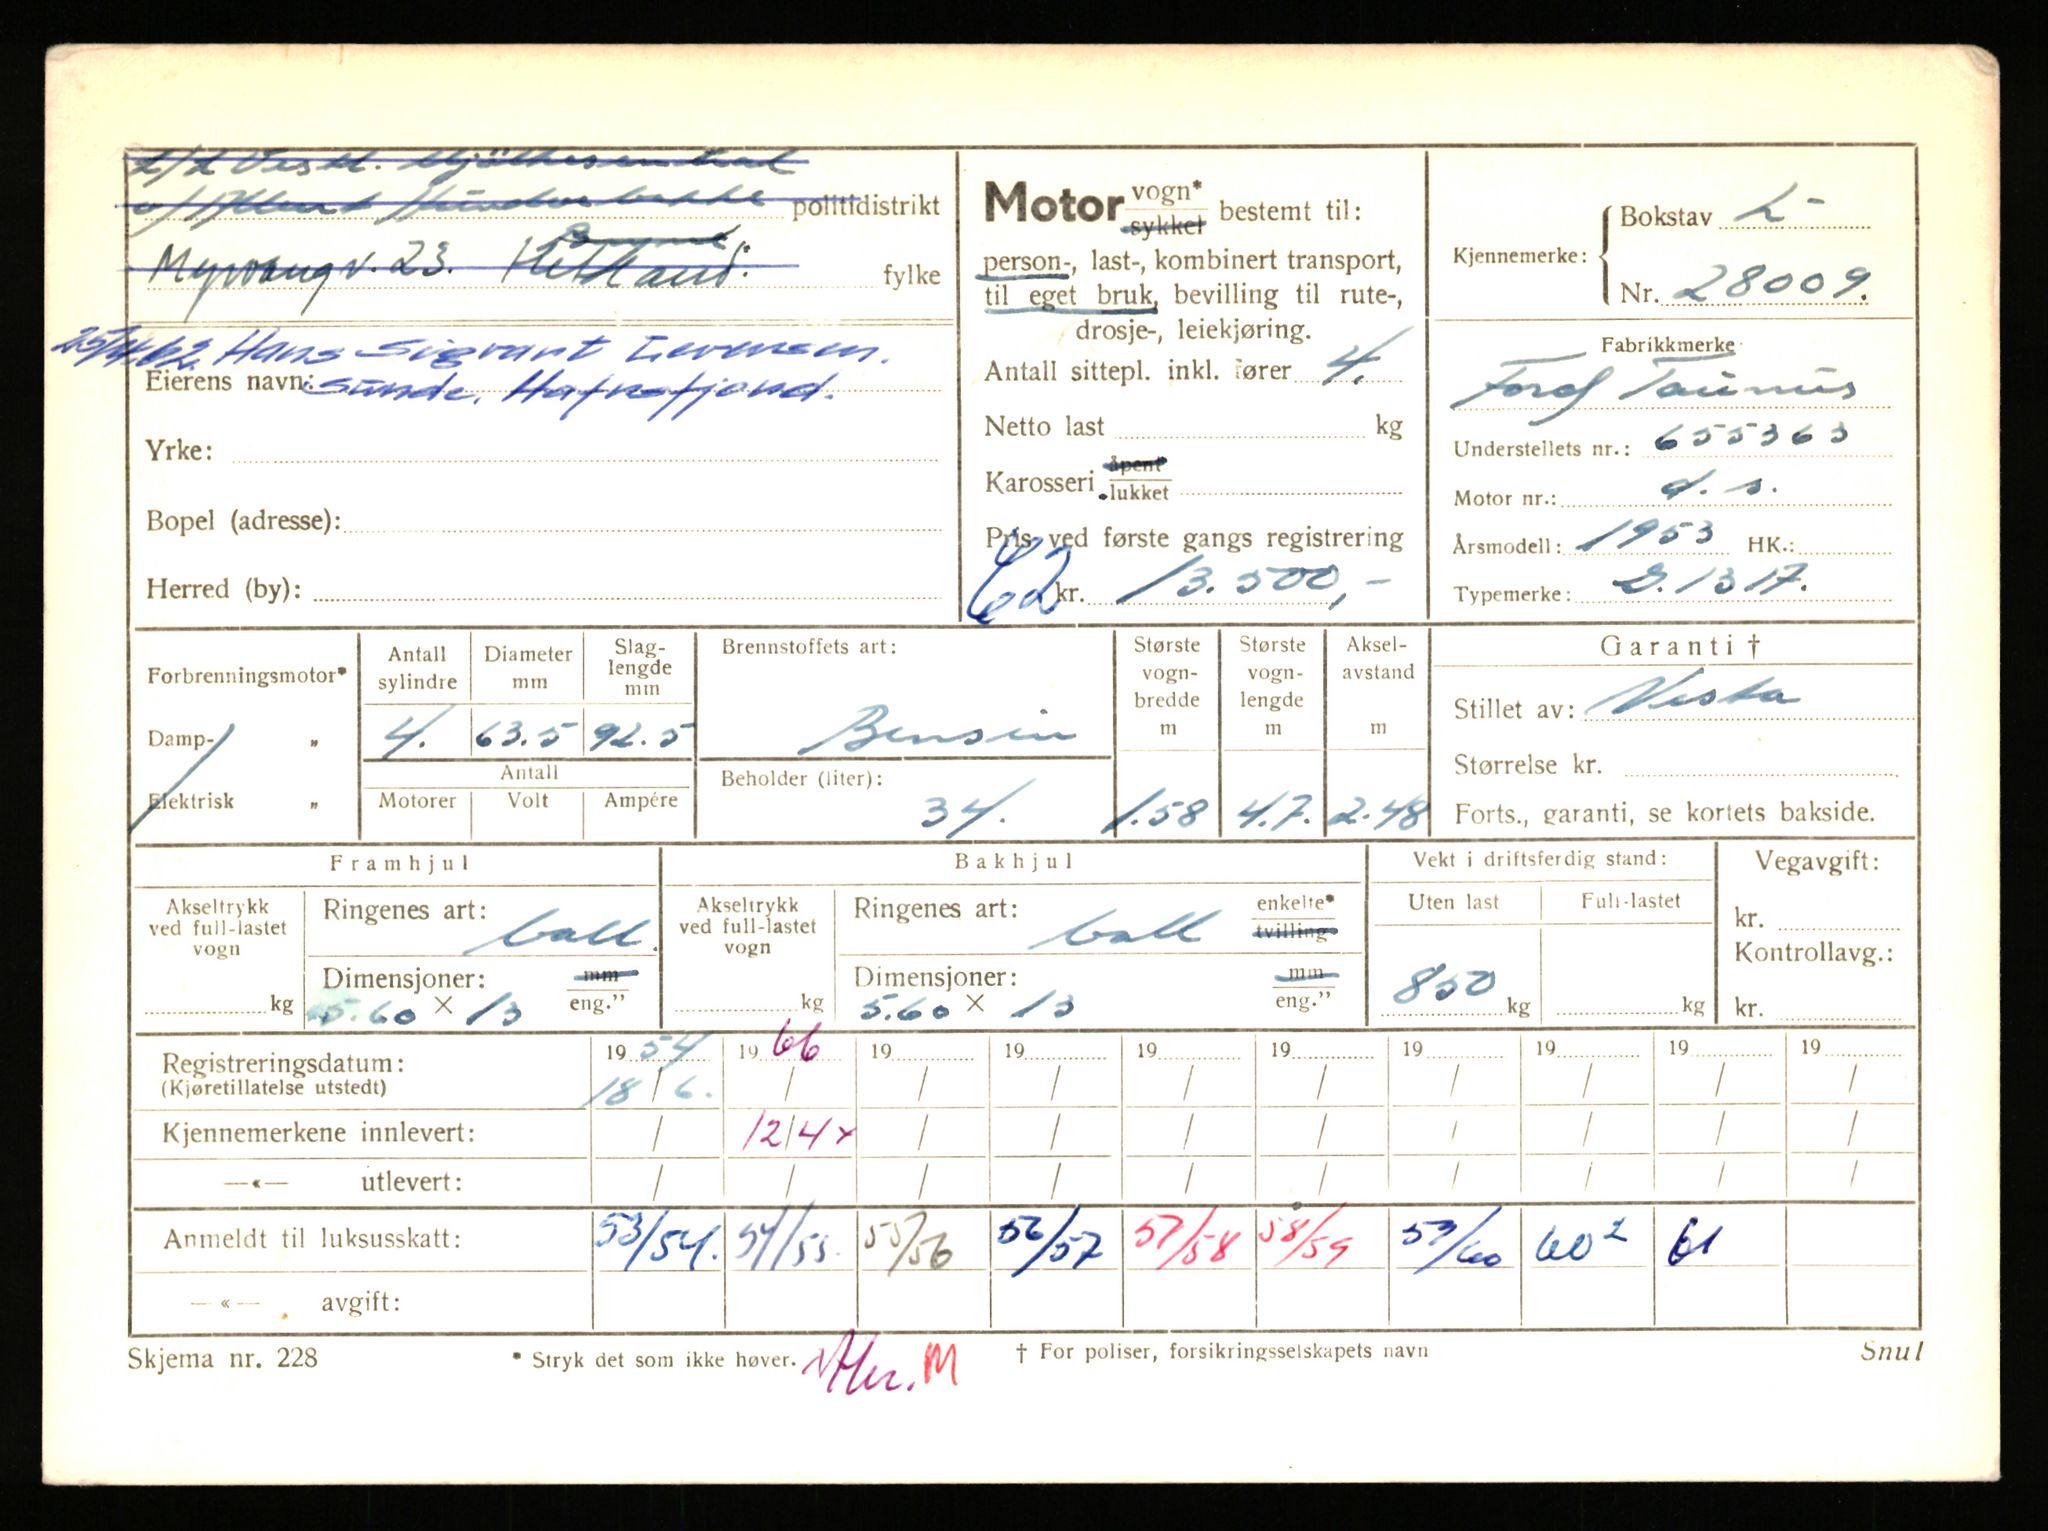 politidistrikt
Myrvang v. 23. Hetland.
fylke
25/4.62. Hans Sigvart
Eierens navn: Sunde, Hafrsfjord.
Yrke:
Bopel (adresse):
Herred (by):
Motor vogn* sykkel bestemt til:
person-, last-, kombinert transport,
til eget bruk, bevilling til rute-,
drosje-, leiekjøring.
Antall sittepl. inkl. fører 4.
Netto last kg
Karosseri åpent lukket
Pris ved første gangs registrering
62 kr. 13.500,-
Kjennemerke:
Bokstav L-
Nr. 28009.
Fabrikkmerke
Ford Taunus
Understellets nr.: 655363
Motor nr.: d. s.
Årsmodell: 1953 HK.:
Typemerke: 1317.
Forbrenningsmotor*
Damp- „
Elektrisk „
Antall sylindre
Diameter mm
Slaglengde mm
4. 63.5 92.5
Antall
Motorer Volt Ampére
Brennstoffets art:
Bensin
Beholder (liter):
34.
Største vognbredde m
1.58
Største vognlengde m
4.7.
Akselavstand m
2.48
Garanti †
Stillet av: Vesta
Størrelse kr.
Forts., garanti, se kortets bakside.
Framhjul
Akseltrykk ved full-lastet vogn
kg
Ringenes art: ball.
Dimensjoner: mm
5.60 × 13 eng."
Bakhjul
Akseltrykk ved full-lastet vogn
kg
Ringenes art: ball enkelte* tvilling
Dimensjoner: mm
5.60 × 13 eng."
Vekt i driftsferdig stand:
Uten last Full-lastet
850 kg kg
Vegavgift:
kr.
Kontrollavg.:
kr.
Registreringsdatum: 19 54 19 66 19 19 19 19 19 19 19 19
(Kjøretillatelse utstedt) 18/6. / / / / / / / / /
Kjennemerkene innlevert: / 12/4 x / / / / / / / /
—«— utlevert: / / / / / / / / / /
Anmeldt til luksusskatt: 53/54. 54/55. 55/56 56/57 57/58 58/59 59/60 60² 61
—«— avgift:
Skjema nr. 228
* Stryk det som ikke høver.
M
† For poliser, forsikringsselskapets navn
Snul